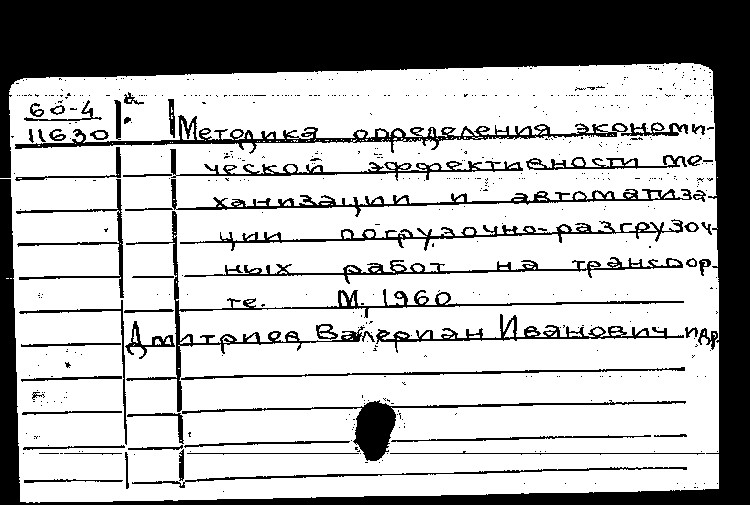 60-4
11630
Методика определения экономи-
ческой эффективности ме-
ханизации и автоматиза-
ции погрузочно-разгрузоч-
ных работ на транспор-
те. М, 1960
Дмитриев, Валериан Иванович и др.